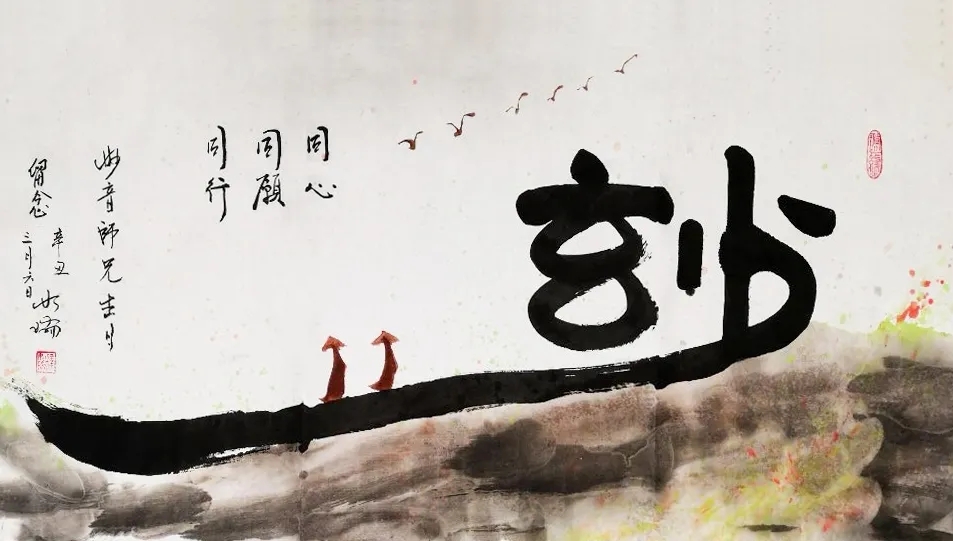 玅
同心
同願
同行
妙音師兄生日
留念
辛丑
三月六日
如瑞